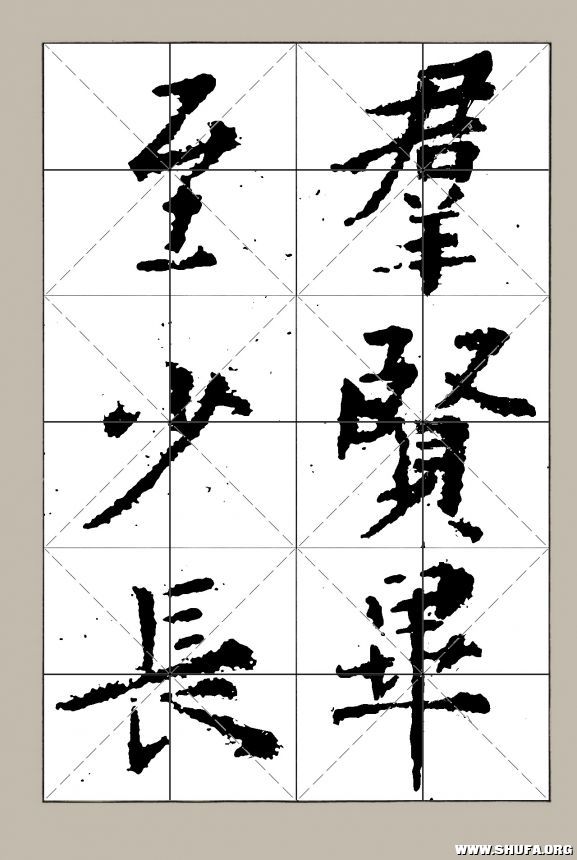 羣賢畢
至少長
WWW.SHUFA.ORG